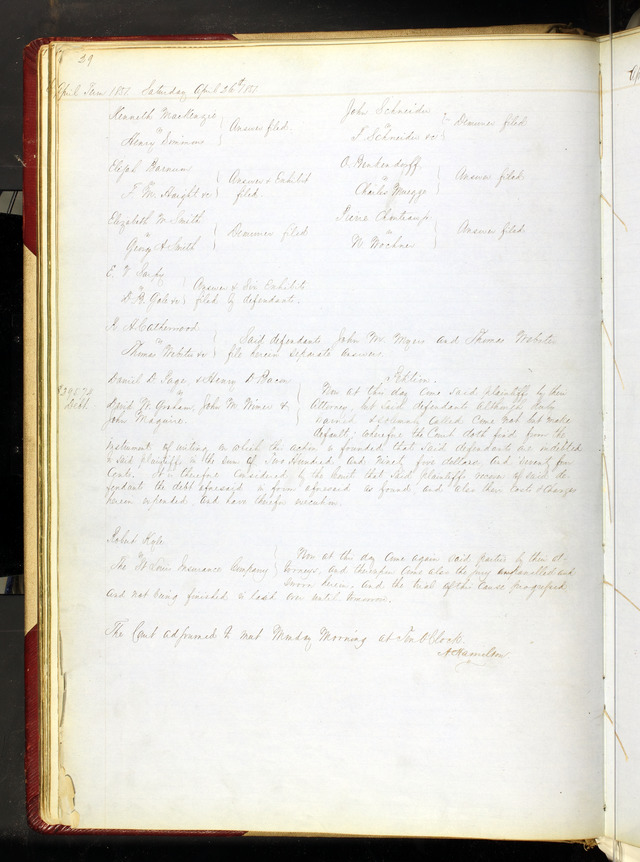 29
April Term 1851 Saturday April 26th 1851
Kenneth Mackenzie
vs
Henry Simmons
Answer filed.
John Schneider
vs
T. Schneider &c
Demurrer filed
Elijah Barnum
vs
F. M. Haight &c
Answer & Exhibit
filed.
O. Benkendorff
vs
Charles Muegge
Answer filed
Elizabeth W. Smith
vs
George A Smith
Demurrer filed
Pierre
vs
N. Wochner
Answer filed
E. V
vs
D. B. Gale &c
Answer & Six Exhibits
filed by defendants.
H A Catherwood
vs
Thomas Webster &c
Said defendants John M. Myers and Thomas Webster
file herein separate answers.
Daniel D. Page, & Henry D. Bacon
vs
David W. Graham, John M. Wimer &
John Maguire.
$295.74
Debt.
Petition.
Now at this day come said plaintiffs by their
Attorney, but said defendants although duly
named & solemnly called Come not but make
default, wherefore the Court doth find from the
instrument of writing on which the action is founded that said defendants are indebted
to said plaintiffs in the sum of Two Hundred and Ninety five dollars and Seventy four
Cents. It is therefore considered by the Court that said plaintiffs recover of said de-
fendants the debt aforesaid in form aforesaid as found and also their costs & charges
herein expended, and have thereof execution.
Robert Hale
vs
The St Louis Insurance Company
Now at this day come again said parties by their at-
torneys, and thereupon come also the jury empannelled and
sworn herein, and the trial of this cause progressed
and not being finished is laid over until tomorrow.
The Court adjourned to meet Monday Morning at Ten O Clock
A Hamilton